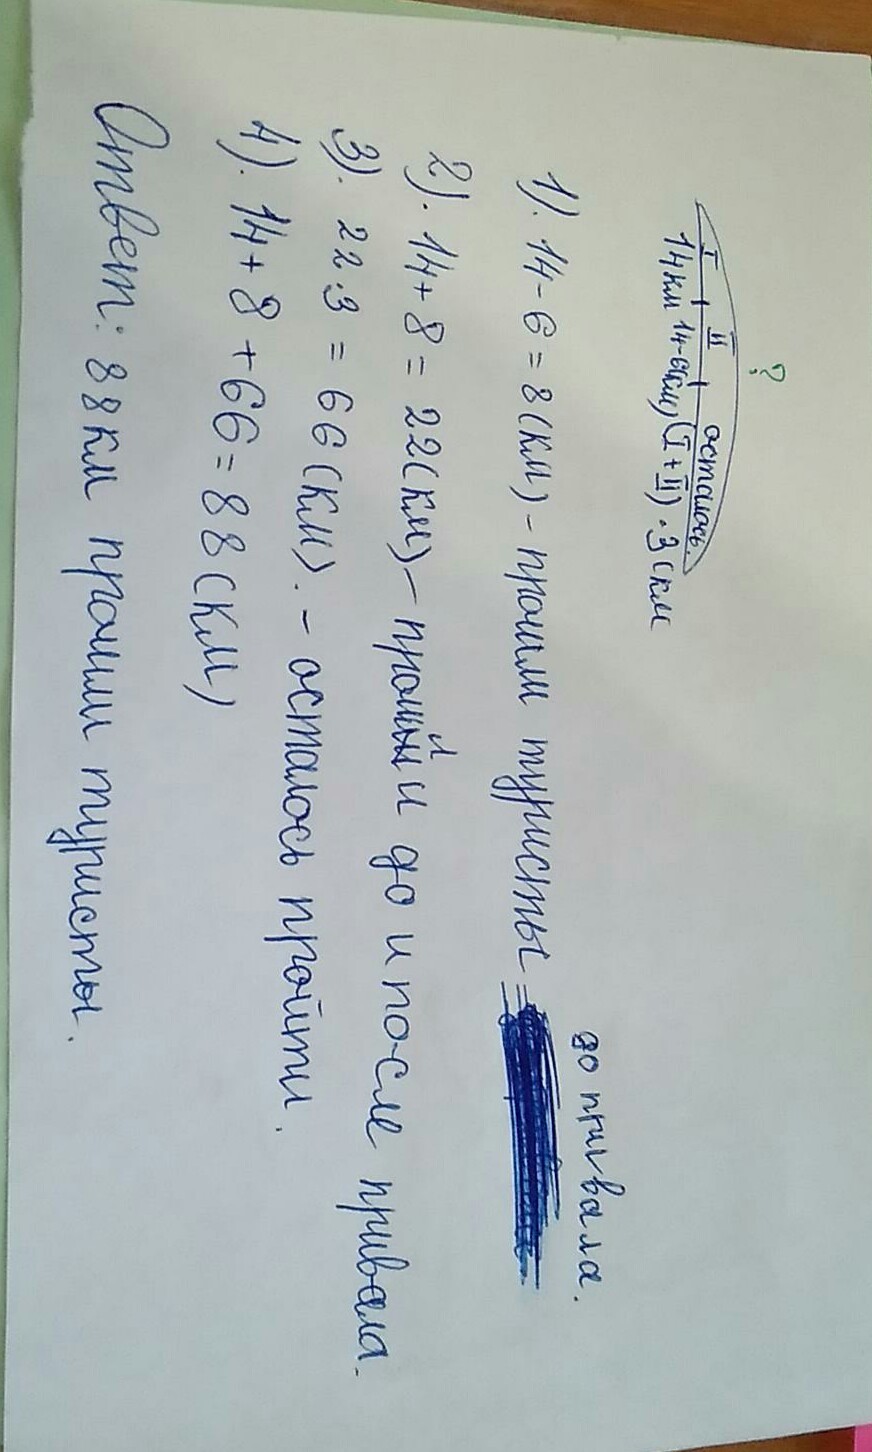 ?
I II осталось.
14км 14-6(км) (I+II)·3(км
до привала.
1). 14-6=8(км)-прошли туристы
2). 14+8=22(км)-прошли до и после привала.
3). 22·3=66(км).-осталось пройти.
4). 14+8+66=88(км)
Ответ: 88км прошли туристы.